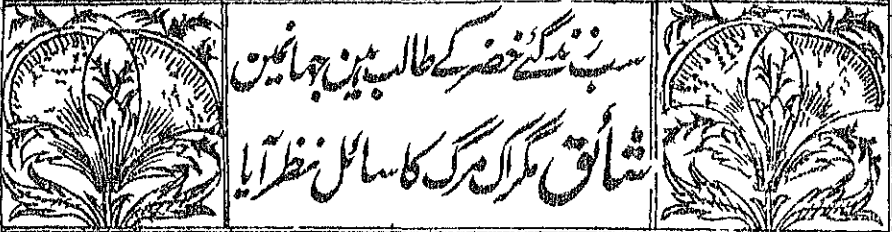 سب زندگئے خضر کے طالب ہین جہانمین
شائق مگر اک مرگ کا سائل نظر آیا